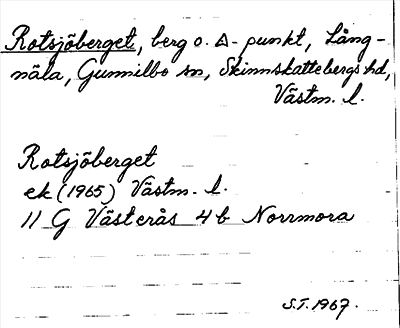 Rotsjöberget, berg o. △-punkt, Lång-
näla, Gunnilbo sn, Skinnskattebergs hd,
Västm. l.
Rotsjöberget
ek (1965) Västm. l.
11 G Västerås 4b Norrmora
S.T. 1967.